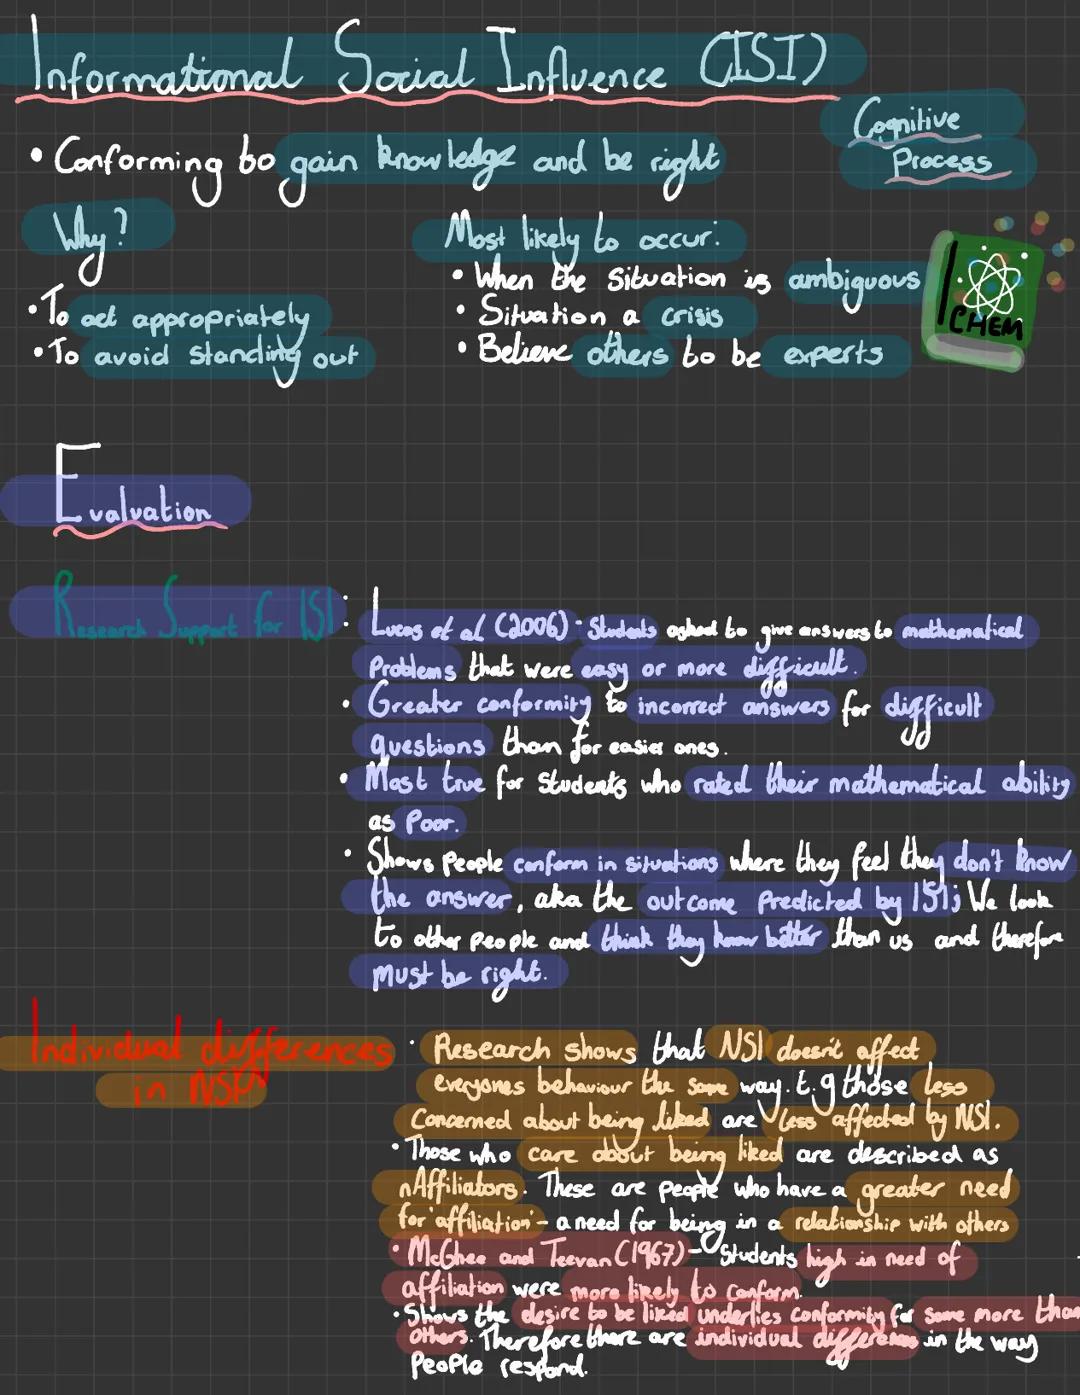 Informational Social Influence (ISI)
Cognitive
Process
• Conforming to gain knowledge and be right
Why?
• To act appropriately
• To avoid standing out
Most likely to occur:
• When the situation is ambiguous
• Situation a crisis
• Believe others to be experts
CHEM
Evaluation
Research Support for ISI
• Lucas et al (2006) - Students asked to give answers to mathematical
problems that were easy or more difficult.
• Greater conformity to incorrect answers for difficult
questions than for easier ones.
• Most true for students who rated their mathematical ability
as Poor.
• Shows People conform in situations where they feel they don't know
the answer, aka the outcome predicted by ISI; We look
to other people and think they know better than us and therefore
must be right.
Individual differences
in NSI
• Research shows that NSI doesn't affect
everyones behaviour the same way. E.g those less
concerned about being liked are less affected by NSI.
• Those who care about being liked are described as
nAffiliators. These are people who have a greater need
for 'affiliation' - a need for being in a relationship with others
• McGhee and Teevan (1967) - Students high in need of
affiliation were more likely to conform.
• Shows the desire to be liked underlies conformity for some more than
others. Therefore there are individual differences in the way
People respond.